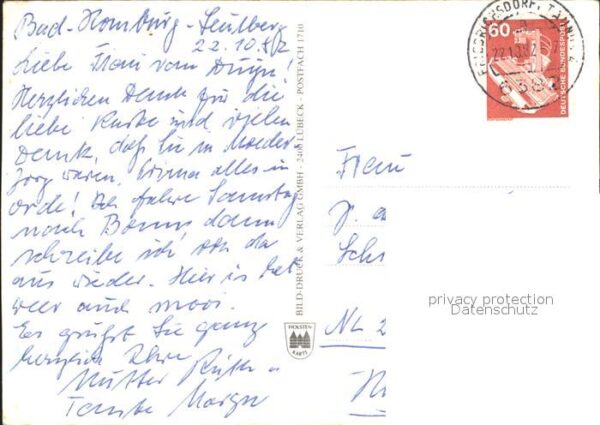 Bad-Homburg-Seulberg
22.10.82
Liebe Frau van Duyn!
Herzlichen Dank für die
liebe Karte und vielen
Dank, daß Sie in Moeder
Zorg waren. Prima alles in
orde! Ich fahre Samstag
nach Bonn, dann
schreibe ich von da
aus wieder. Hier is het
weer auch mooi.
Es grüßt Sie ganz
herzlich Ihre
Mutter Ruth u
Tante Margu
BILD-DRUCK & VERLAG GMBH · 2400 LÜBECK · POSTFACH 1710
HOLSTEN
KARTE
60
DEUTSCHE BUNDESPOST
FRIEDRICHSDORF, TAUNUS
22.10.82
6382
Frau
Sch
NL 2
privacy protection
Datenschutz